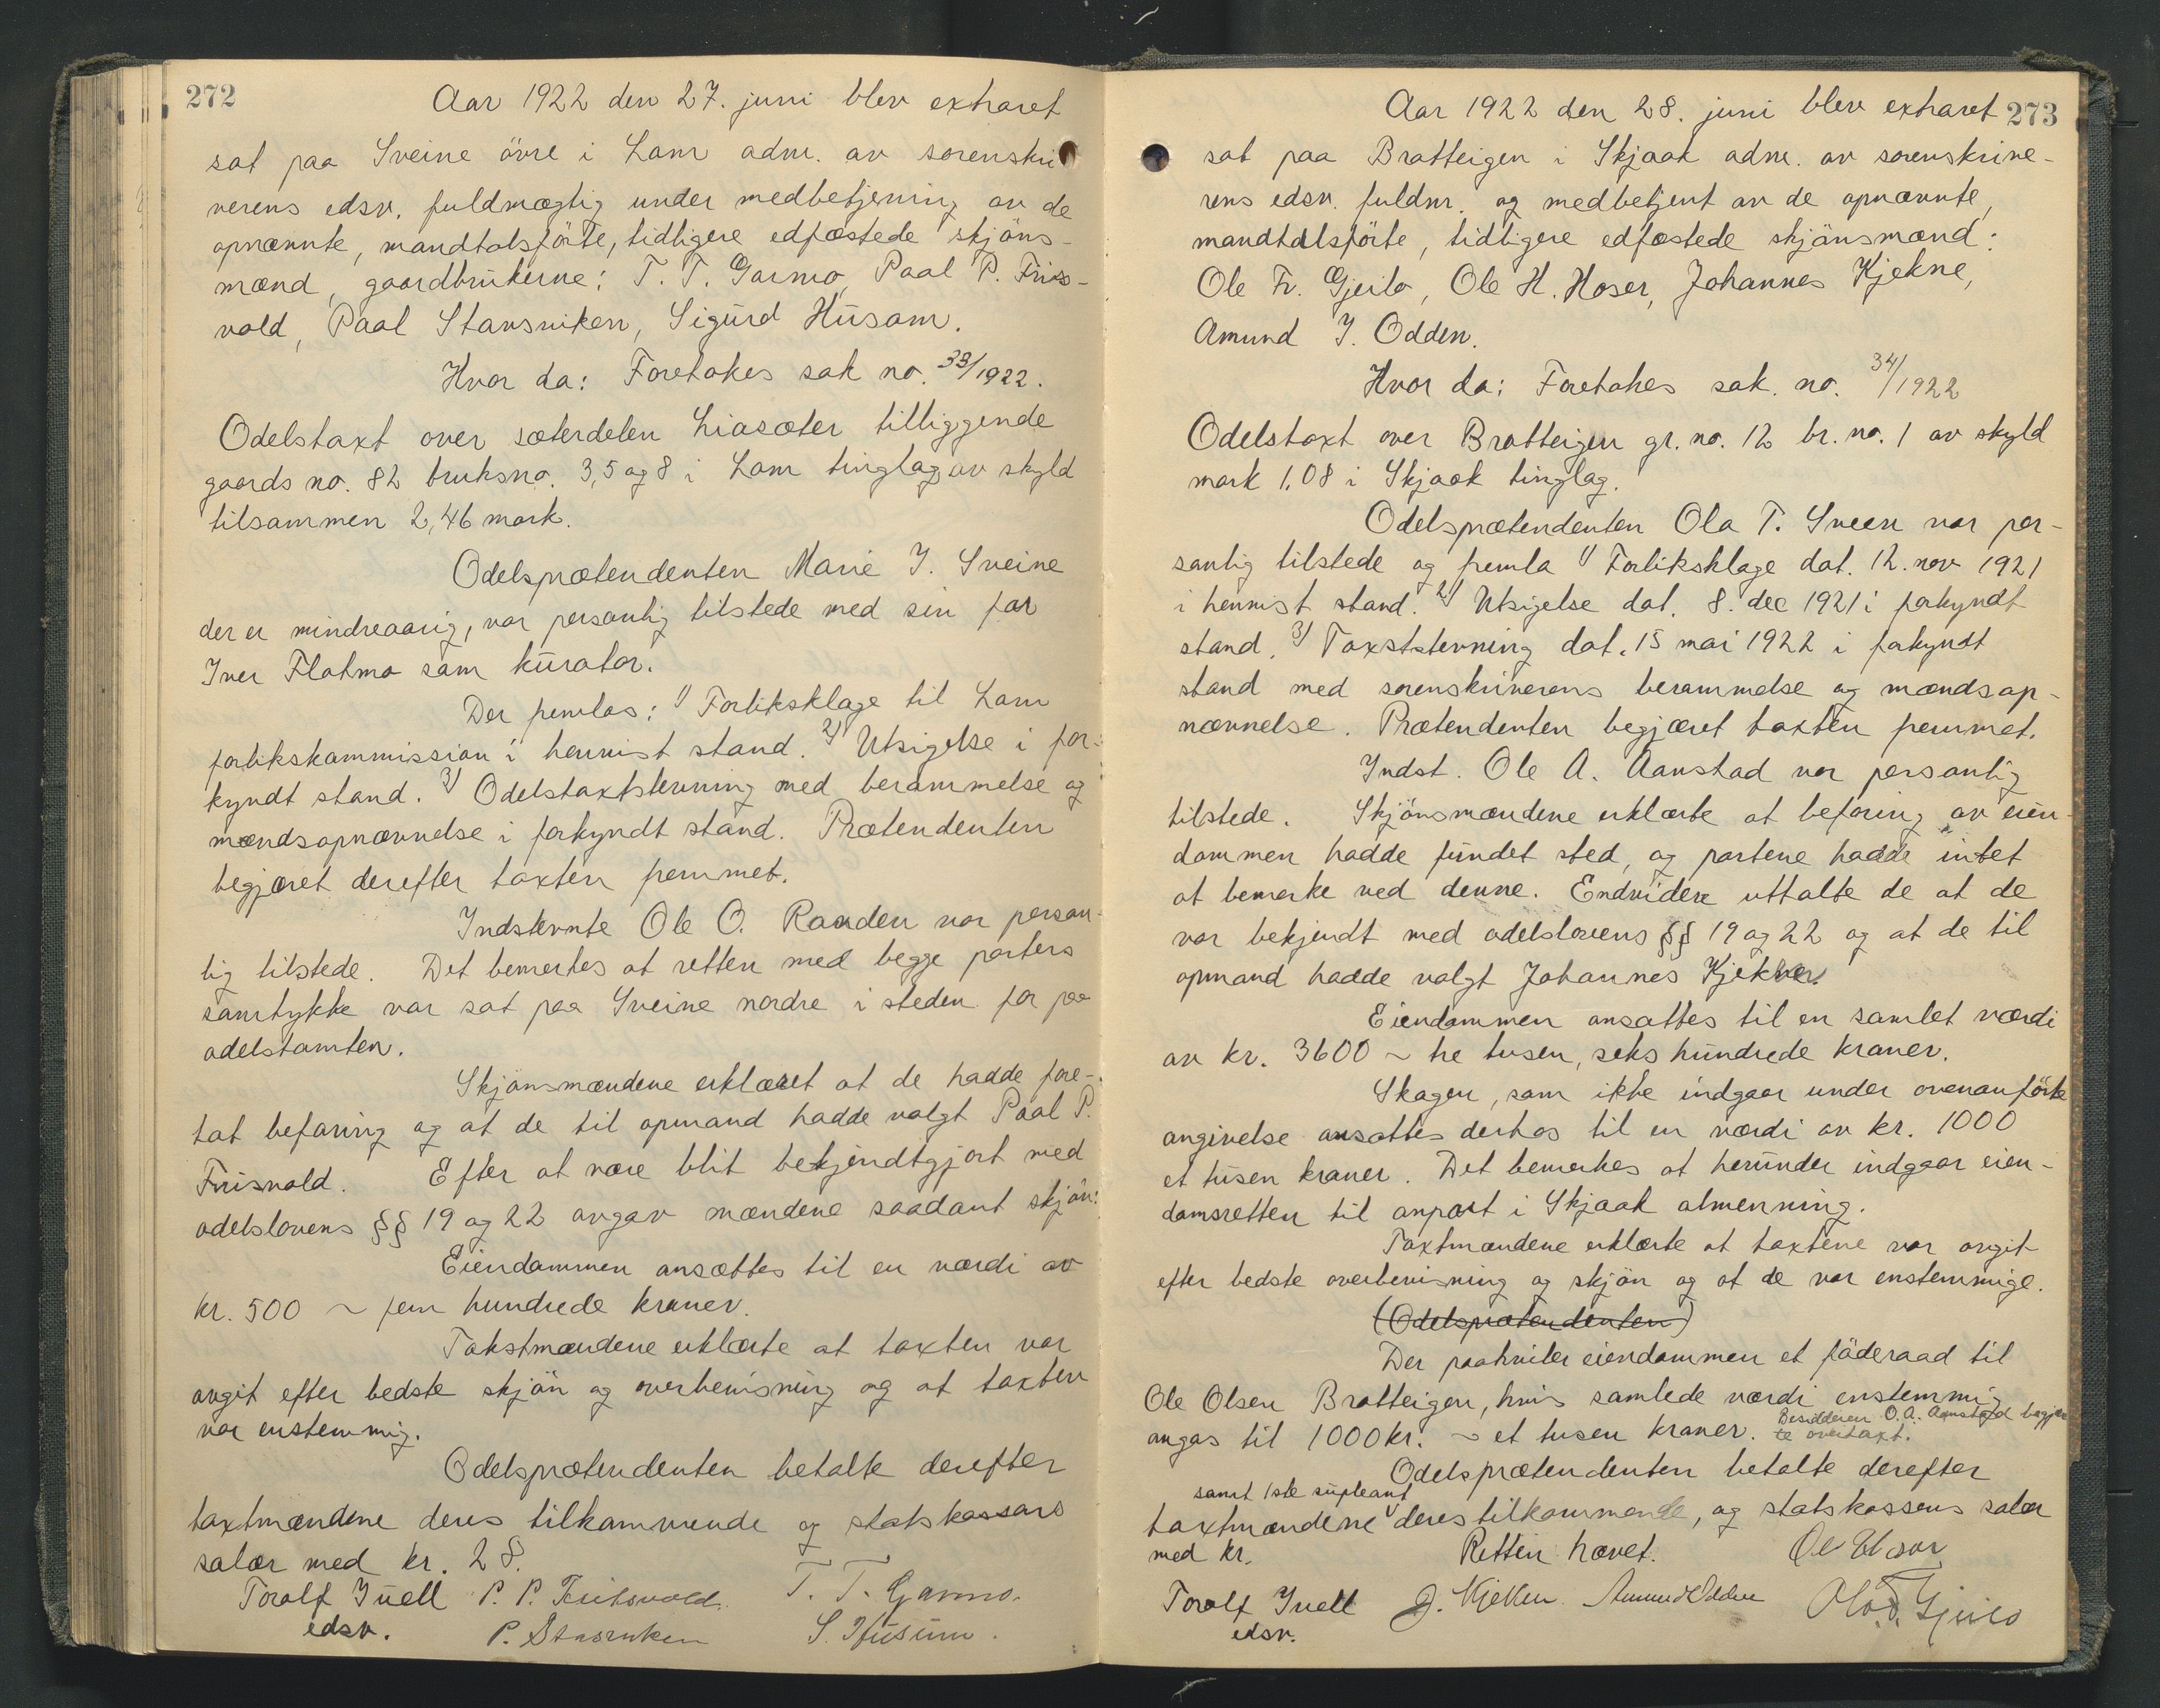 272
Aar 1922 den 27. juni blev extraret
sat paa Sveine övre i Lom adm. av sorenskri
verens edsv. fuldmægtig under medbetjening av de
opnævnte, mandtalsförte, tidligere edfæstede skjöns-
mænd, gaardbrukerne: T. T. Garmo, Paal P. Friis-
vold, Paal Stamsviken, Sigurd Husom.
Hvor da: Foretokes sak no. 33/1922.
Odelstaxt over sæterdelen Liasæter tilliggende
gaards no. 82 bruksno. 3, 5 og 8 i Lom tinglag av skyld
tilsammen 2,46 mark.
Odelsprætendenten Marie J. Sveine
der er mindreaarig, var personlig tilstede med sin far
Iver Flotmo som kurator.
Der fremlas: 1) Forliksklage til Lom
forlikskommission i henvist stand. 2) Utsigelse i for-
kyndt stand. 3) Odelstaxtstevning med berammelse og
mændsopnævnelse i forkyndt stand. Prætendenten
begjæret derefter taxten fremmet.
Indstevnte Ole O. Raanden var person-
lig tilstede. Det bemerkes at retten med begge parters
samtykke var sat paa Sveine nordre i steden for paa
odelstomten.
Skjönsmændene erklæret at de hadde fore-
tat befaring og at de til opmand hadde valgt Paal P.
Friisvold. Efter at være blit bekjendtgjort med
odelslovens §§ 19 og 22 avgav mændene saadant skjön:
Eiendommen ansættes til en værdi av
kr. 500 ~ fem hundrede kroner.
Takstmændene erklærte at taxten var
avgit efter bedste skjön og overbevisning og at taxten
var enstemmig.
Odelsprætendenten betalte derefter
taxtmændene deres tilkommende og statskassens
salær med kr. 28.
Toralf Juell P. P. Friisvold. T. T. Garmo.
edsv. P. Stamsviken S. Husum.
Aar 1922 den 28. juni blev extraret 273
sat paa Bratteigen i Skjaak adm. av sorenskrive-
rens edsv. fuldm. og medbetjent av de opnævnte,
mandtalsförte, tidligere edfæstede skjönsmænd:
Ole Fr. Gjeilo, Ole H. Hoser, Johannes Kjekne,
Amund J. Odden.
Hvor da: Foretokes sak. no. 34/1922
Odelstaxt over Bratteigen gr. no. 12 br. no. 1 av skyld
mark 1,08 i Skjaak tinglag.
Odelsprætendenten Ola T. Sveen var per-
sonlig tilstede og fremla 1) Forliksklage dat. 12. nov 1921
i henvist stand. 2) Utsigelse dat. 8. dec 1921 i forkyndt
stand. 3) Taxststevning dat. 15 mai 1922 i forkyndt
stand med sorenskriverens berammelse og mændsop-
nævnelse. Prætendenten begjæret taxten fremmet.
Indst. Ole A. Aanstad var personlig
tilstede. Skjönsmændene erklærte at befaring av eien-
dommen hadde fundet sted, og partene hadde intet
at bemerke ved denne. Endvidere uttalte de at de
var bekjendt med odelslovens §§ 19 og 22 og at de til
opmand hadde valgt Johannes Kjekne.
Eiendommen ansattes til en samlet værdi
av kr. 3600 ~ tre tusen, seks hundrede kroner.
Skogen, som ikke indgaar under ovenanförte
angivelse ansattes derhos til en værdi av kr. 1000
et tusen kroner. Det bemerkes at herunder indgaar eien-
domsretten til anpart i Skjaak almenning.
Taxtmændene erklærte at taxtene var avgit
efter bedste overbevisning og skjön og at de var enstemmige.
(Odelsprætendenten)
Der paahviler eiendommen et föderaad til
Ole Olsen Bratteigen, hvis samlede værdi enstemmig
angas til 1000 kr. ~ et tusen kroner. Besidderen O. A. Aanstad begjær
te overtaxt.
Odelsprætendenten betalte derefter
samt 1ste supleant
taxtmændene deres tilkommende, og statskassens salær
med kr. Retten hævet. Ole Hoser
Toralf Juell J. Kjekne. Amund Odden Ole Fr. Gjeilo
edsv.